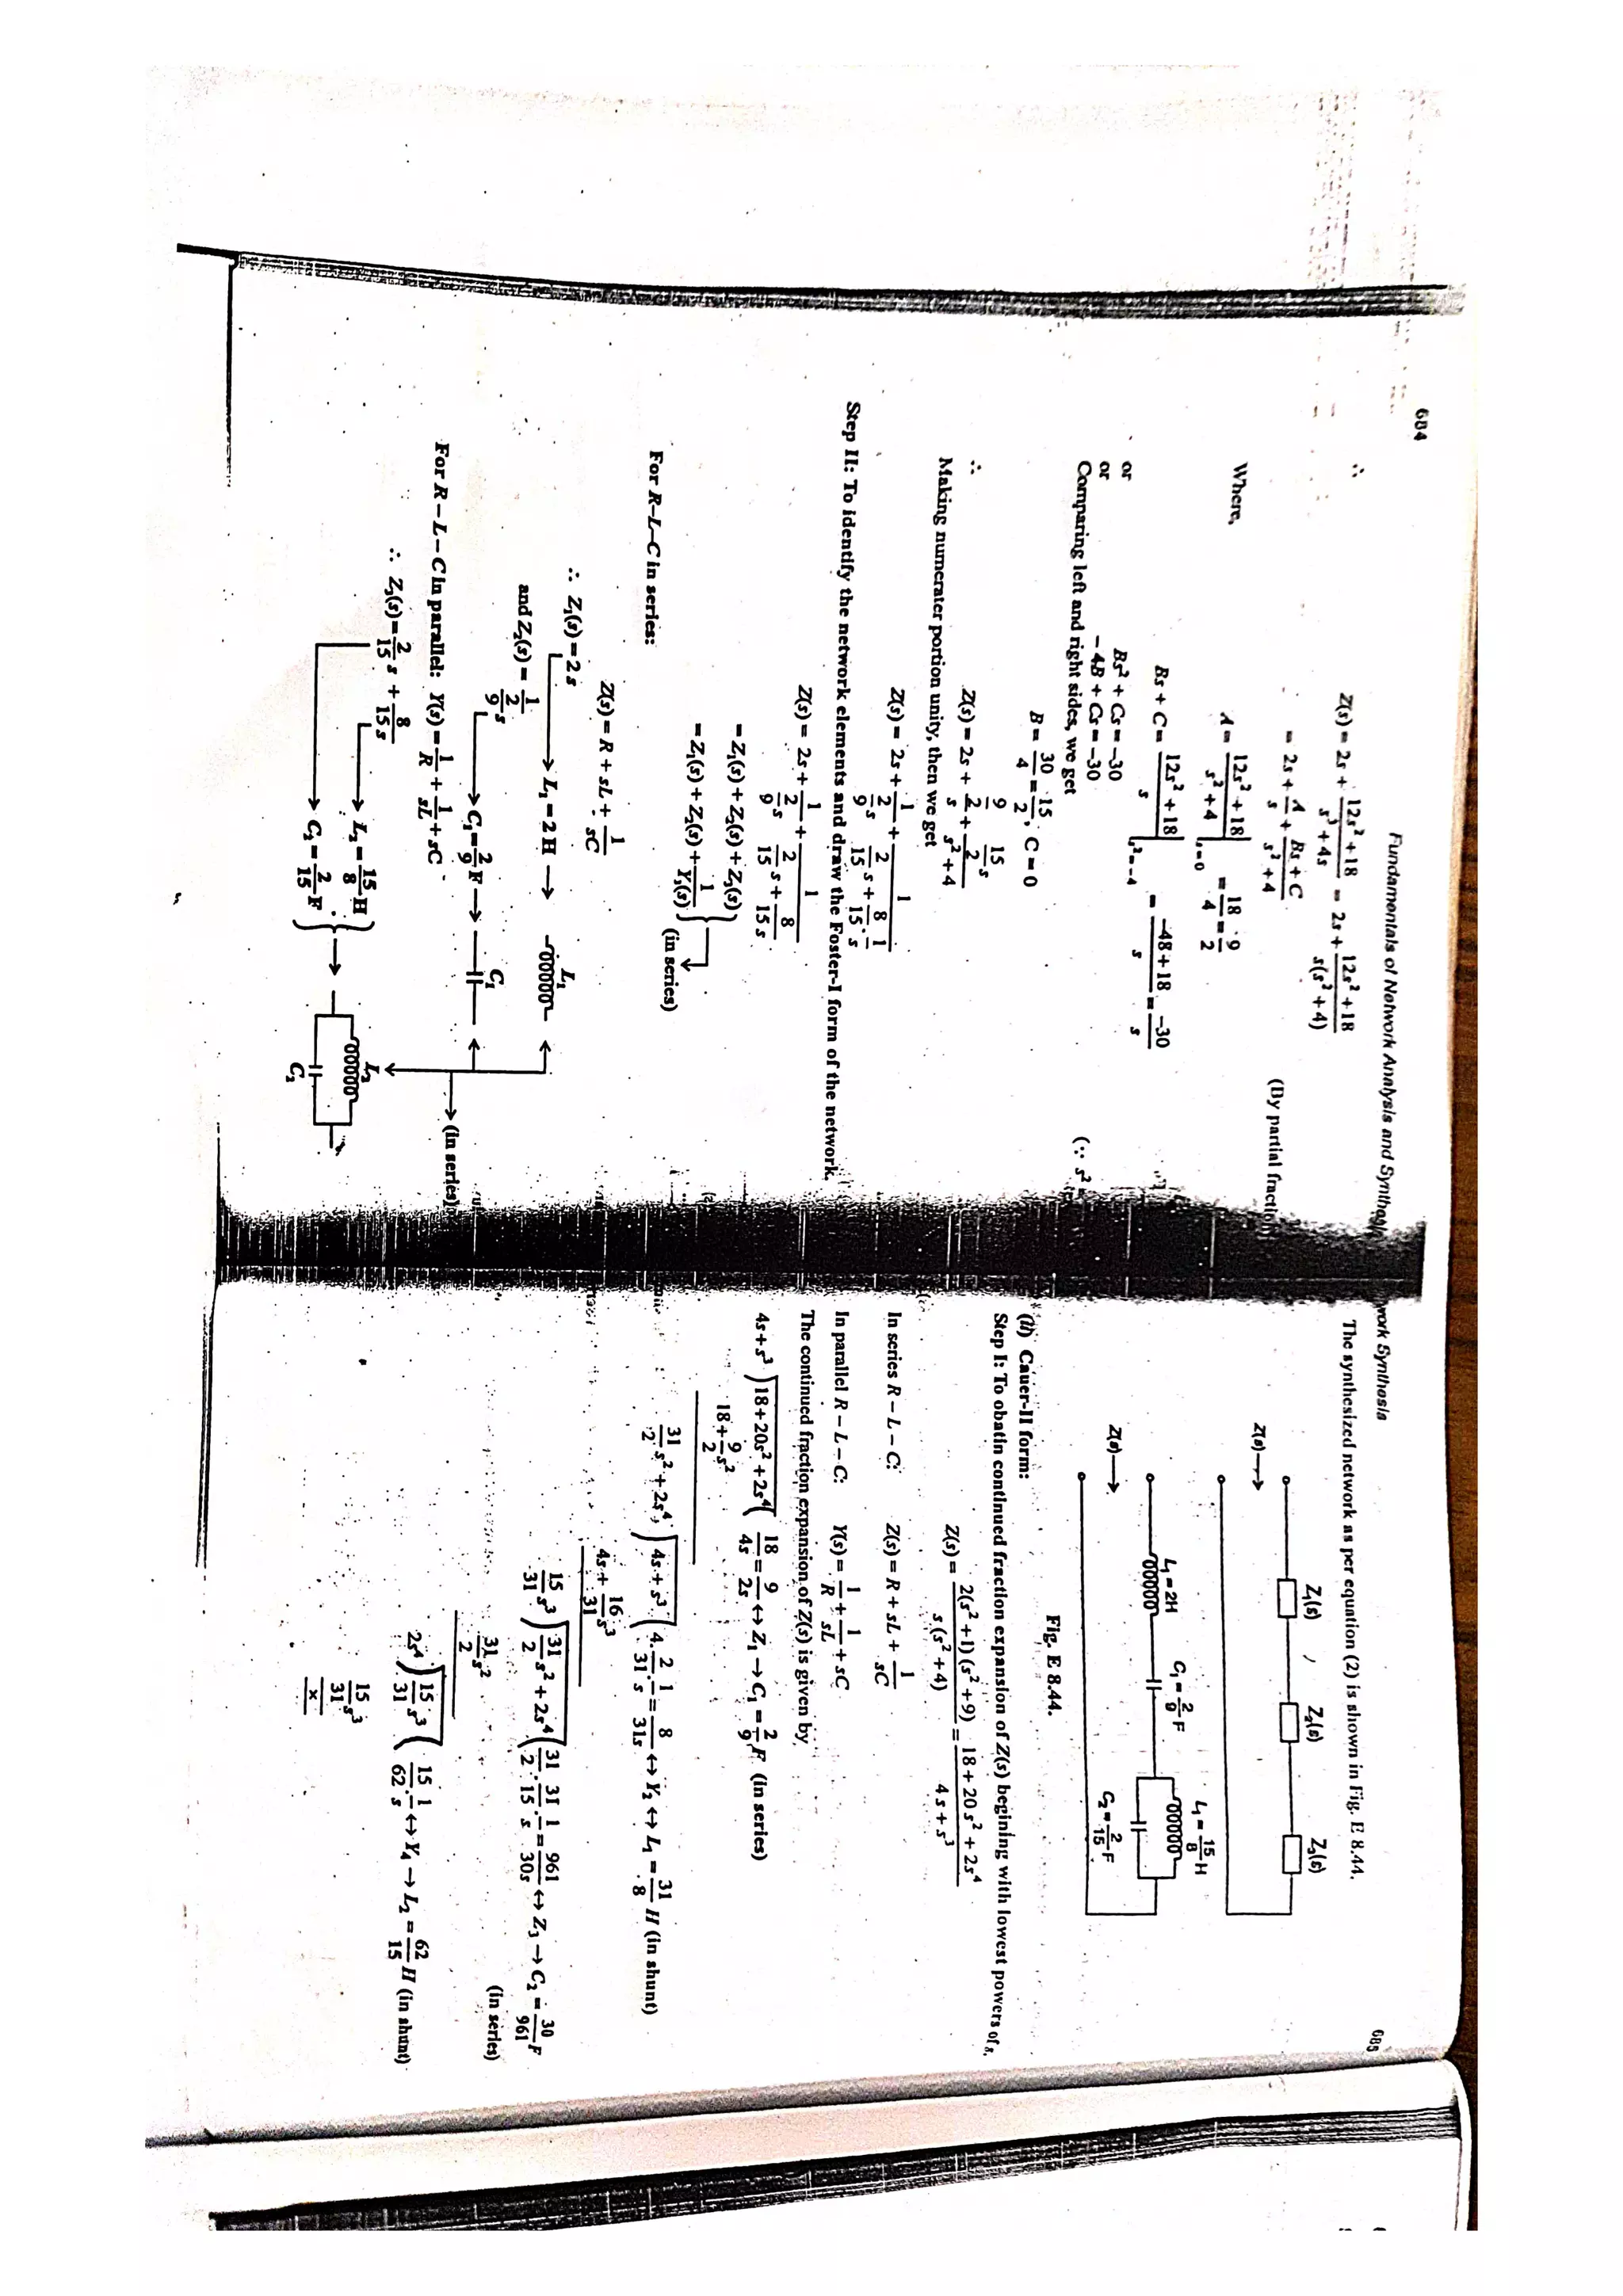 684
Fundamentals of Network Analysis and Synthesis
∴ Z(s) = 2s + (12s² + 18)/(s³ + 4s) = 2s + (12s² + 18)/(s(s² + 4))
= 2s + A/s + (Bs + C)/(s² + 4) (By partial fraction)
Where, A = (12s² + 18)/(s² + 4) |s=0 = 18/4 = 9/2
Bs + C = (12s² + 18)/s |s²=–4 = (–48 + 18)/s = –30/s
or Bs² + Cs = –30
or – 4B + Cs = –30 (∵ s² =
Comparing left and right sides, we get
B = 30/4 = 15/2, C = 0
∴ Z(s) = 2s + (9/2)/s + (15/2 s)/(s² + 4)
Making numerater portion unity, then we get
Z(s) = 2s + 1/(2/9 s) + 1/(2/15 s + 8/15 · 1/s)
Step II: To identify the network elements and draw the Foster-I form of the network.
Z(s) = 2s + 1/(2/9 s) + 1/(2/15 s + 8/(15 s))
= Z₁(s) + Z₂(s) + Z₃(s)
= Z₁(s) + Z₂(s) + 1/Y₃(s)
(in series)
For R–L–C in series:
Z(s) = R + sL + 1/(sC)
∴ Z₁(s) = 2s
→ L₁ = 2 H → L₁
and Z₂(s) = 1/(2/9 s)
→ C₁ = 2/9 F → C₁
→ (in series)
For R – L – C in parallel: Y(s) = 1/R + 1/(sL) + sC
∴ Z₃(s) = 2/15 s + 8/(15 s)
→ L₂ = 15/8 H
→ C₂ = 2/15 F
→ L₂
C₂
work Synthesis
685
The synthesized network as per equation (2) is shown in Fig. E 8.44.
Z(s) → Z₁(s) , Z₂(s) Z₃(s)
Z(s) → L₁ = 2H C₁ = 2/9 F L₁ = 15/8 H
C₂ = 2/15 F
Fig. E 8.44.
(ii) Cauer-II form:
Step I: To obatin continued fraction expansion of Z(s) begining with lowest powers of s.
Z(s) = 2(s² + 1) (s² + 9)/(s (s² + 4)) = (18 + 20 s² + 2s⁴)/(4s + s³)
In series R – L – C: Z(s) = R + sL + 1/(sC)
In parallel R – L – C: Y(s) = 1/R + 1/(sL) + sC
The continued fraction expansion of Z(s) is given by
4s + s³ ) 18 + 20s² + 2s⁴ ( 18/4s = 9/2s ↔ Z₁ → C₁ = 2/9 F (in series)
18 + 9/2 s²
31/2 s² + 2s⁴ ) 4s + s³ ( 4. 2/31 · 1/s = 8/31s ↔ Y₂ ↔ L₁ = 31/8 H (in shunt)
4s + 16/31 s³
15/31 s³ ) 31/2 s² + 2s⁴ ( 31/2 · 31/15 · 1/s = 961/30s ↔ Z₃ → C₂ = 30/961 F
31/2 s² (in series)
2s⁴ ) 15/31 s³ ( 15/62 · 1/s ↔ Y₄ → L₂ = 62/15 H (in shunt)
15/31 s³
×